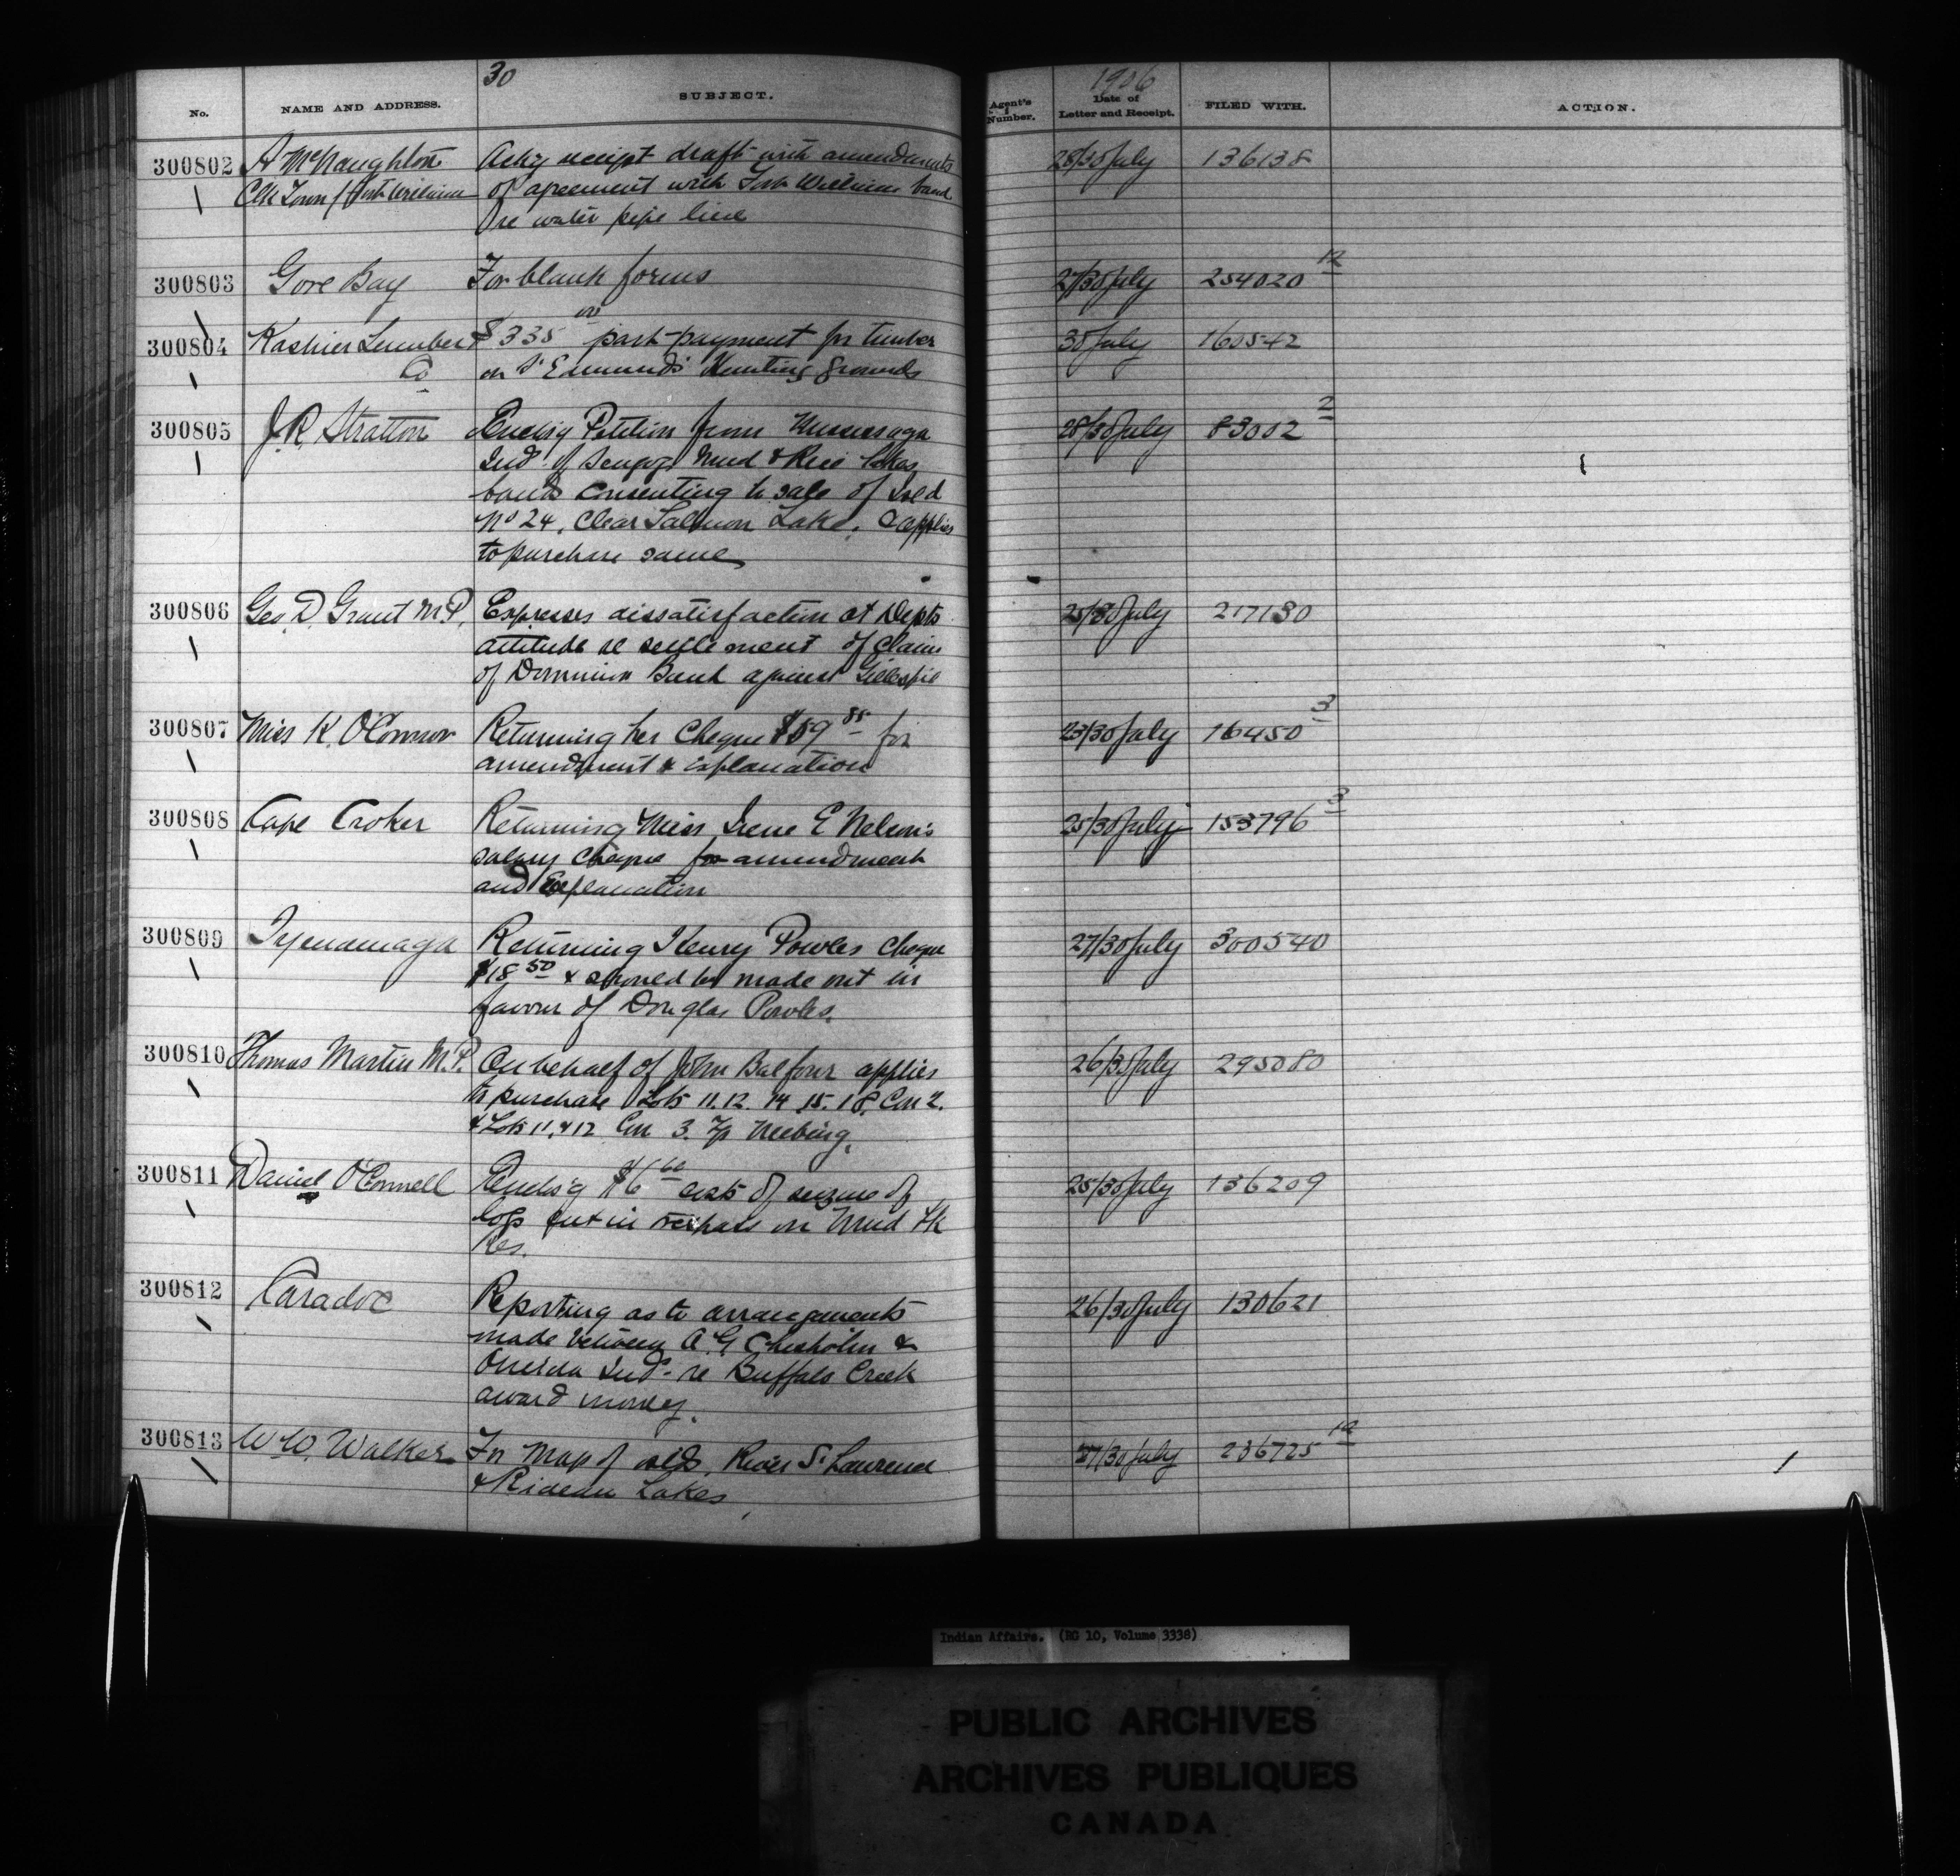 30
1906
No.
NAME AND ADDRESS.
SUBJECT.
Agent's Number.
Date of Letter and Receipt.
FILED WITH.
ACTION.
300802 A McNaughton Ackg receipt draft with amendments 28/30 July 136138
Clk Town Fort William of agreement with Fort William band
re water pipe line
300803 Gore Bay For blank forms 27/30 July 254020 12
300804 Kastner Lumber $335 00 part payment for timber 30 July 160542
Co on St Edmunds Hunting Grounds
300805 J.R. Stratton Enclsg Petition from Mississaga 28/30 July 83002 2
Inds of Scugog, Mud & Rice Lakes
bands consenting to sale of Isld
No 24, Clear Salmon Lake, applies
to purchase same
300806 Geo. D. Grant M.P. Expresses dissatisfaction at Depts 25/30 July 217130
attitude re settlement of claim
of Dominion Bank against Gillespie
300807 Miss K. O'Connor Returning her Cheque $59 85 for 23/30 July 16450 3
amendment & explanation
300808 Cape Croker Returning Miss Irene E Nelson's 25/30 July 153796 3
salary cheque for amendment
and Explanation
300809 Tyendenaga Returning Henry Powles Cheque 27/30 July 300540
$18 50 & should be made out in
favour of Douglas Powles.
300810 Thomas Martin M.P. On behalf of John Balfour applies 26/30 July 295080
to purchase Lots 11. 12. 14 15. 18. Con 2.
& Lots 11. & 12 Con 3. Tp Neebing.
300811 Daniel O'Connell Enclsg $6 60 costs of seizure of 28/30 July 136209
logs cut in trespass on Mud Lk
Res.
300812 Caradoc Reporting as to arrangements 26/30 July 130621
made between A. G. Chisholm &
Oneida Inds. re Buffalo Creek
award money.
300813 W W. Walker For Map of islds, River St Lawrence 27/30 July 236725 12
& Rideau Lakes
Indian Affairs. (RG 10, Volume 3338)
PUBLIC ARCHIVES
ARCHIVES PUBLIQUES
CANADA